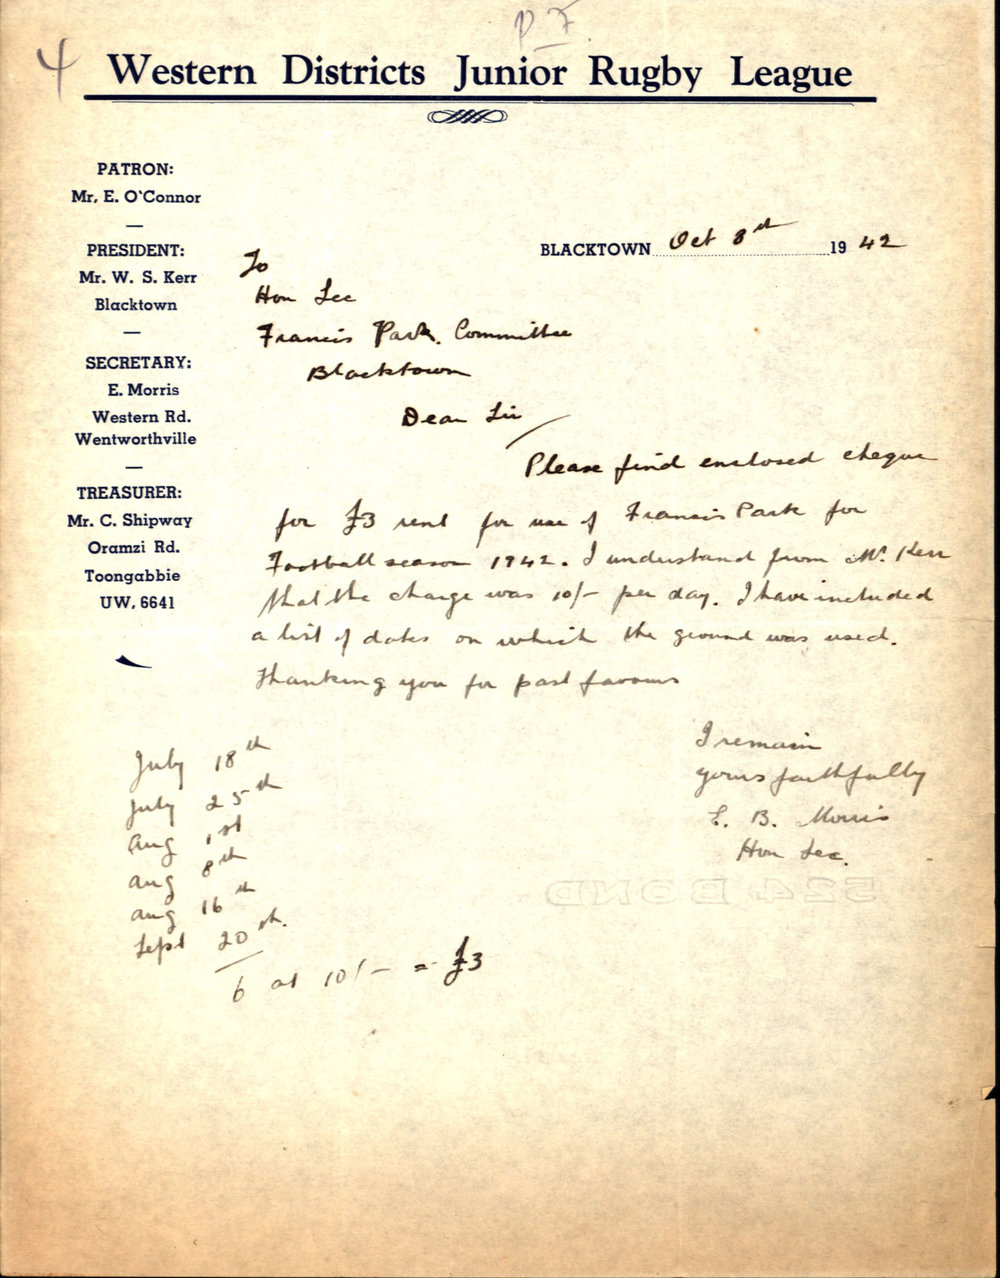 4
P.F.
Western Districts Junior Rugby League
PATRON:
Mr. E. O'Connor
PRESIDENT:
Mr. W. S. Kerr
Blacktown
SECRETARY:
E. Morris
Western Rd.
Wentworthville
TREASURER:
Mr. C. Shipway
Oramzi Rd.
Toongabbie
UW. 6641
BLACKTOWN Oct 8th 1942
To
Hon Sec
Francis Park Committee
Blacktown
Dear Sir
Please find enclosed cheque
for £3 rent for use of Francis Park for
Football season 1942. I understand from Mr. Kerr
that the charge was 10/- per day. I have included
a list of dates on which the ground was used.
Thanking you for past favours
I remain
yours faithfully
E. B. Morris
Hon Sec.
July 18th
July 25th
Aug 1st
Aug 8th
Aug 16th
Sept 20th.
6 at 10/- = £3
524 BOND